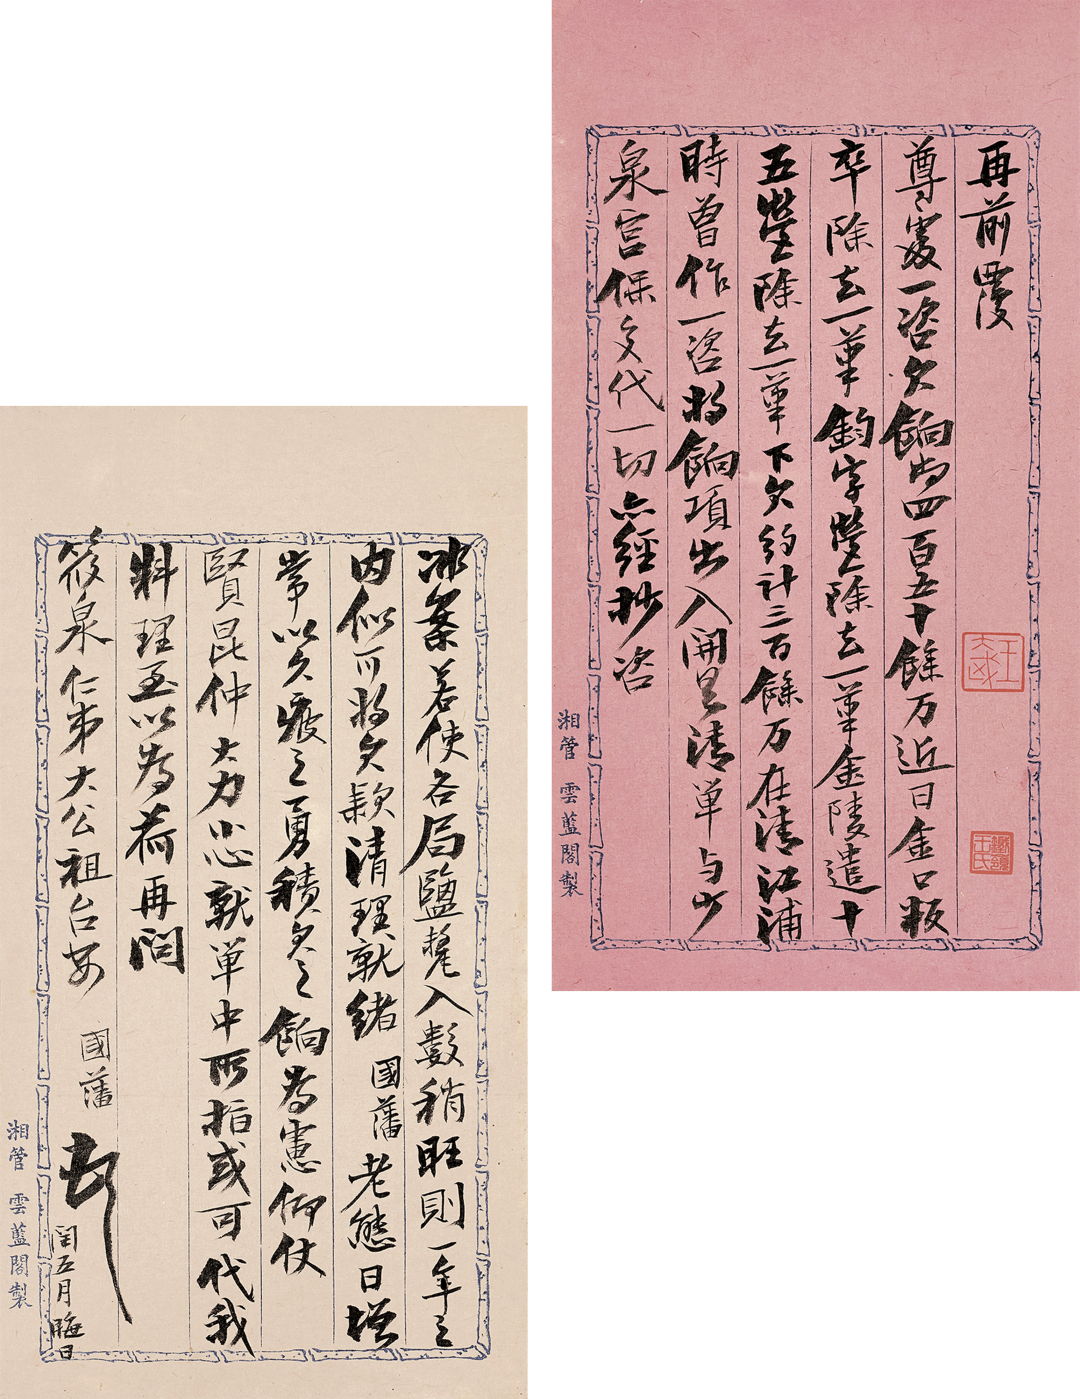 再前覆
尊處一咨欠餉尚四百五十餘万近日金口叛
卒除去一單鈞字營除去一單金陵遣十
五營除去一單下欠約計三百餘万在清江浦
時曾作一咨將餉項出入開呈清單与少
泉宮保交代一切亦經抄咨
湘管 雲藍閣製
冰案若使各局鹽釐入數稍旺則一年之
内似可將欠款清理就緒國藩老態日增
常以久疲之勇積欠之餉為憲仰仗
賢昆仲大力忠就單中所指或可代我
料理至以為荷再問
筱泉仁弟大公祖台安
國藩
頓
閏五月晦日
湘管 雲藍閣製